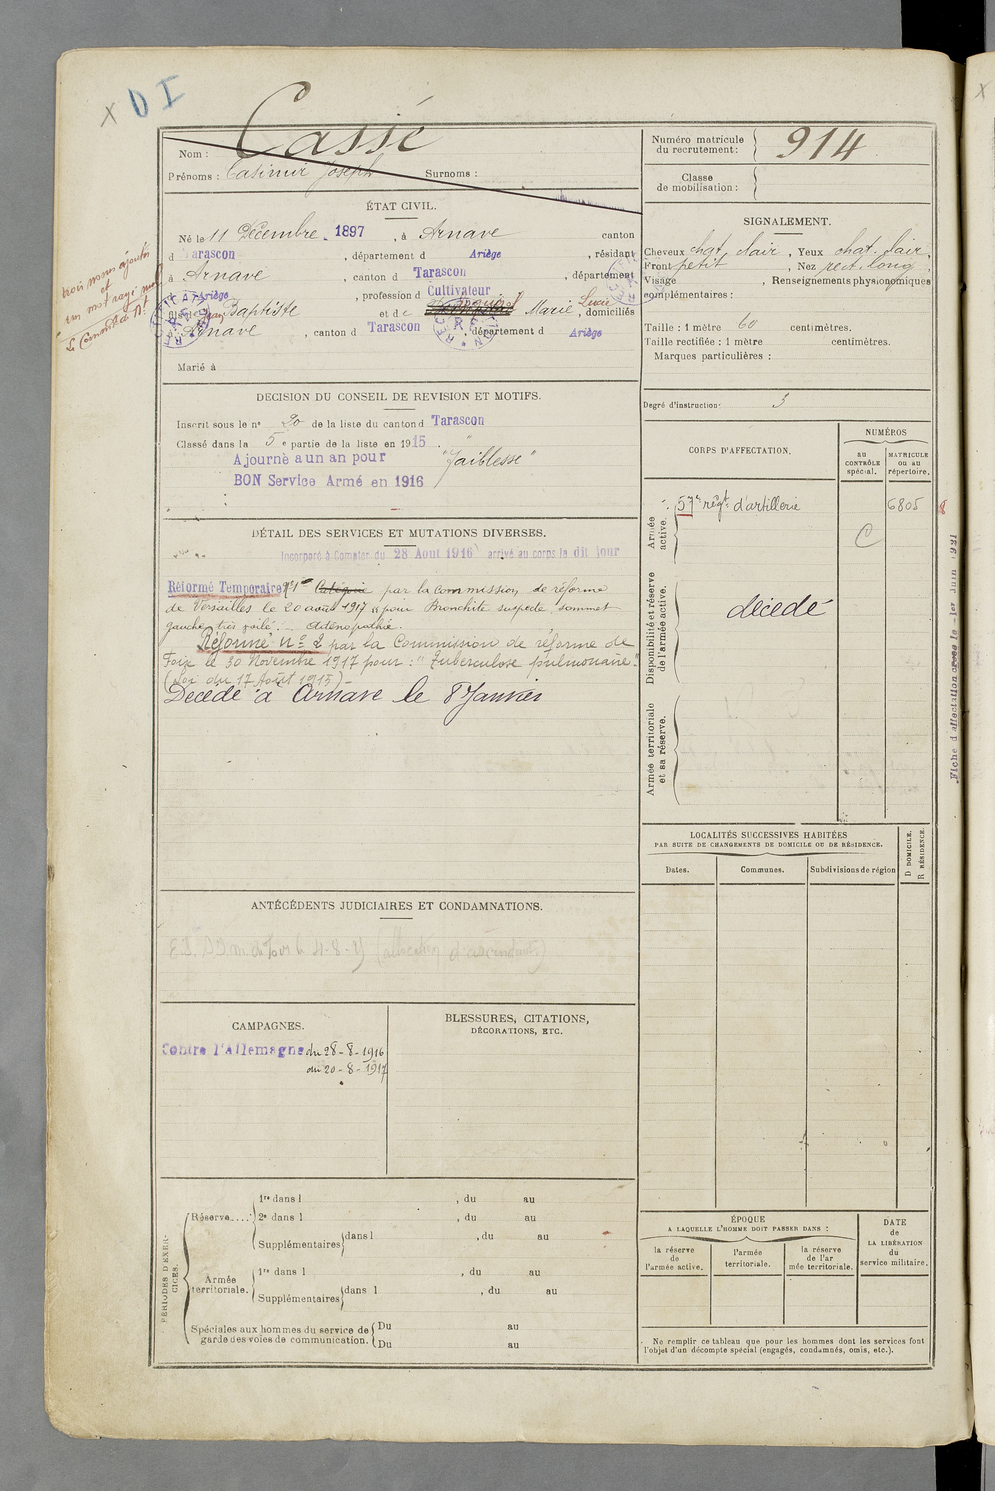 x D I
Cassé
Nom :
Prénoms : Casimir Joseph Surnoms :
Numéro matricule du recrutement : 914
Classe de mobilisation :
ÉTAT CIVIL.
Né le 11 Décembre 1897, à Arnave canton
d Tarascon, département d Ariège, résidant
à Arnave, canton d Tarascon, département
d Ariège, profession d Cultivateur
fils de Jean Baptiste et de Marie Lucie, domiciliés
à Arnave, canton d Tarascon, département d Ariège
Marié à
trois mots ajoutés
et
un mot rayé nul
Le Commandt du Rt
SIGNALEMENT.
Cheveux chat. clair, Yeux chat. clair,
Front petit, Nez rect. long,
Visage , Renseignements physionomiques
complémentaires :
Taille : 1 mètre 60 centimètres.
Taille rectifiée : 1 mètre centimètres.
Marques particulières :
Degré d'instruction : 3
DECISION DU CONSEIL DE REVISION ET MOTIFS.
Inscrit sous le n° 20 de la liste du canton d Tarascon
Classé dans la 5e partie de la liste en 1915.
Ajourné a un an pour "Faiblesse"
BON Service Armé en 1916
CORPS D'AFFECTATION.
NUMÉROS
AU CONTRÔLE spécial.
MATRICULE ou au répertoire.
Armée active.
57e régt d'artillerie
6805
C
Disponibilité et réserve de l'armée active.
décédé
Armée territoriale et sa réserve.
DÉTAIL DES SERVICES ET MUTATIONS DIVERSES.
Incorporé à Compter du 28 Aout 1916 arrivé au corps le dit jour
Réformé Temporaire n° 1 Catégorie par la commission de réforme
de Versailles le 20 août 1917 pour Bronchite suspecte sommet
gauche très voilé. Adénopathie.
Réformé n° 2 par la Commission de réforme de
Foix le 30 Novembre 1917 pour : "Tuberculose pulmonaire."
(Loi du 17 Août 1915) -
Décédé à Arnave le 8 Janvier
Fiche d'affectation créée le 1er Juin 1921
LOCALITÉS SUCCESSIVES HABITÉES
PAR SUITE DE CHANGEMENTS DE DOMICILE OU DE RÉSIDENCE.
Dates.
Communes.
Subdivisions de région
D DOMICILE.
R RÉSIDENCE.
ANTÉCÉDENTS JUDICIAIRES ET CONDAMNATIONS.
(allocation d'ascendants)
CAMPAGNES.
Contre l'Allemagne du 28-8-1916
au 20-8-1917
BLESSURES, CITATIONS,
DÉCORATIONS, ETC.
PÉRIODES D'EXERCICES.
Réserve....
1re dans l , du au
2e dans l , du au
Supplémentaires dans l , du au
Armée territoriale.
1re dans l , du au
Supplémentaires dans l , du au
Spéciales aux hommes du service de garde des voies de communication.
Du au
Du au
ÉPOQUE
A LAQUELLE L'HOMME DOIT PASSER DANS :
la réserve de l'armée active.
l'armée territoriale.
la réserve de l'armée territoriale.
DATE de LA LIBÉRATION du service militaire.
Ne remplir ce tableau que pour les hommes dont les services font
l'objet d'un décompte spécial (engagés, condamnés, omis, etc.).